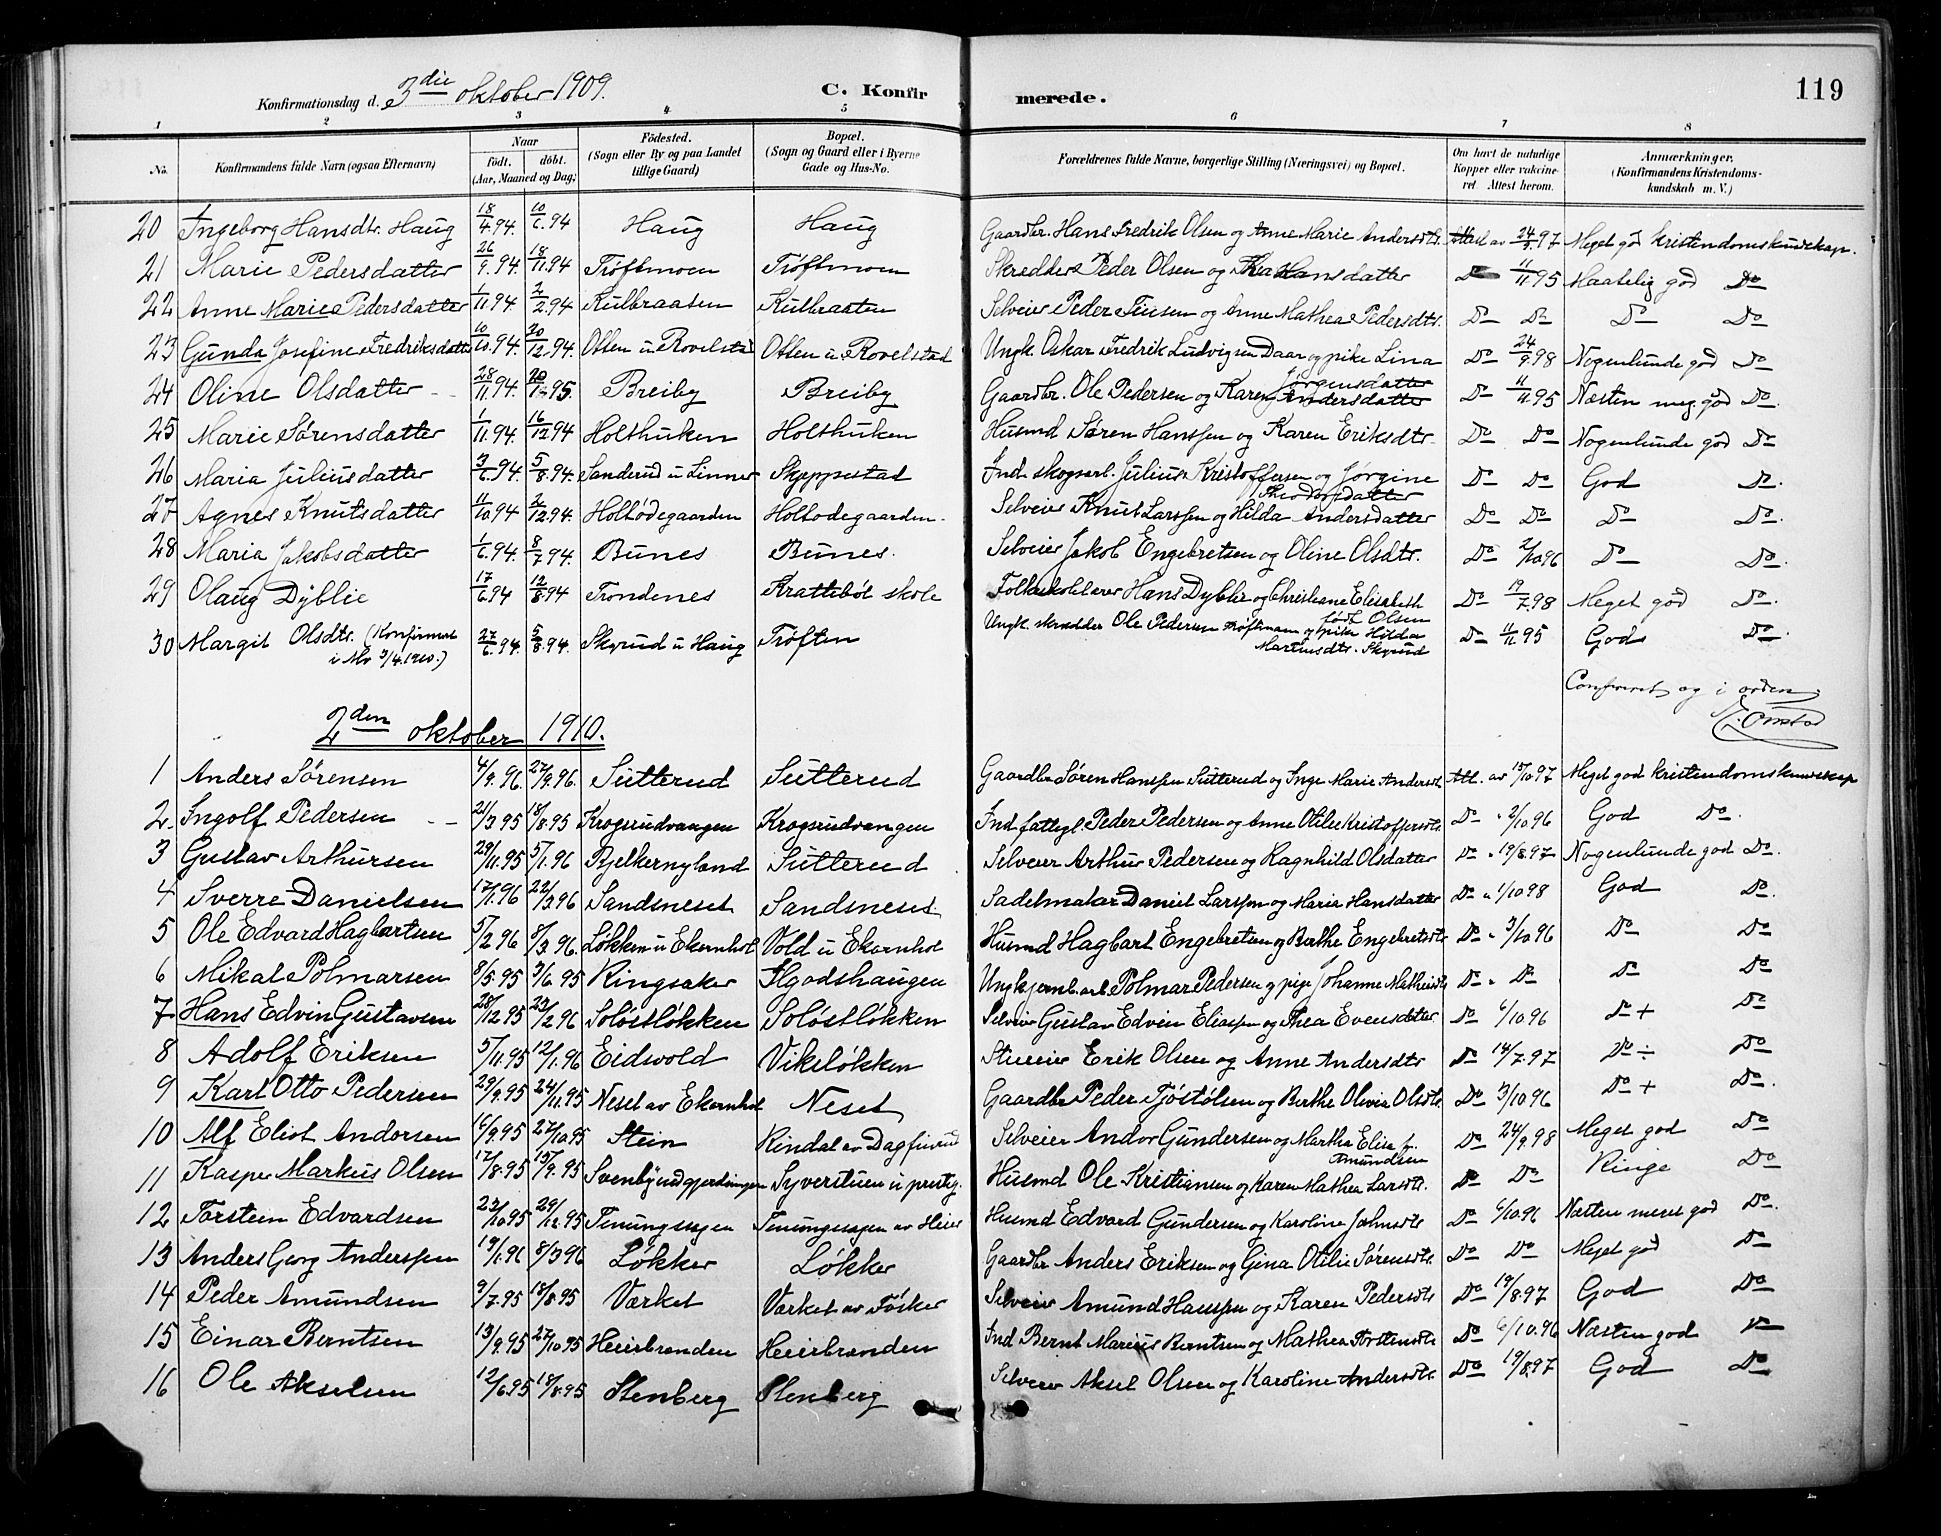 Konfirmationsdag d. 3die oktober 1909. C. Konfirmerede. 119
1 2 3 4 5 6 7 8
No. Konfirmandens fulde Navn (ogsaa Efternavn) Naar født. døbt. (Aar, Maaned og Dag) Fødested. (Sogn eller By og paa Landet tillige Gaard) Bopæl. (Sogn og Gaard eller i Byerne Gade og Hus-No. Forældrenes fulde Navne, borgerlige Stilling (Næringsvei) og Bopæl. Om havt de naturlige Kopper eller vakcineret Attest herom. Anmærkninger. (Konfirmandens Kristendomskundskab m. V.)
20 Ingeborg Hansdtr. Haug 18/4 94. 10/6. 94 Haug Haug Gaardbr. Hans Fredrik Olsen og Anne Marie Andersdtr. Attest av 24/ 97 Meget god kristendomskundskap.
21 Marie Pedersdatter 26/9. 94. 18/11. 94 Trøftmoen Trøftmoen Skrædder Peder Olsen og Thea Hansdatter Do 11/11. 95 Maatelig god Do
22 Anne Marie Pedersdatter 1/11. 94. 2/2. 94 Kulbraaten Kulbraaten Selveier Peder Jensen og Anne Mathea Pedersdtr. Do Do Do Do
23 Gunda Josefine Fredriksdatter 10/10. 94. 20/12. 94. Otten u. Rovelstad Otten u. Rovelstad Ungk. Oskar Fredrik Ludvigsen Daar og pike Lina Do 24/9. 98 Nogenlunde god Do
24 Oline Olsdatter 28/11. 94. 20/1. 95. Breiby Breiby Gaardbr. Ole Pedersen og Karen Jørgensdatter Andersdatter Do 11/11. 95 Næsten meg. god Do.
25 Marie Sørensdatter 1/11. 94. 16/12 94 Holthuken Holthuken Husmd Søren Hanssen og Karen Eriksdtr. Do Do Nogenlunde god Do
26 Maria Juliusdatter 3/6. 94 5/8. 94. Sanderud u Linner Skjeppestad Ind. skogsarb. Julius Kristoffersen og Jørgine Theodorsdatter Do Do God Do.
27 Agnes Knutsdatter 11/10. 94 2/12. 94. Holtødegaarden Holtødegaarden. Selveier Knut Larssen og Hilda Andersdatter Do Do Do Do.
28 Maria Jakobsdatter 1/6. 94 8/7. 94. Bunes Bunes. Selveier Jakob Engebretsen og Oline Olsdtr. Do 2/10 96 Do Do.
29 Olaug Dyblie 17/6. 94 12/8. 94 Trondenes Krattebøl skole Folkeskolelærer Hans Dyblie og Christiane Elisabeth født Olsen Do 19/7. 98 Meget god Do.
30 Margit Olsdtr. (Konfirmert i Mo 3/4. 1910.) 27/6. 94. 5/8. 94. Skyrud u Haug Trøften Ungk. skrædder Ole Pedersen Trøftmoen og pike Hilda Martinsdtr. Skyrud Do 11/11. 95 God Do
Confereret og i orden
2den oktober 1910.
1 Anders Sørensen 4/9. 96. 27/9. 96. Sutterud Sutterud Gaardbr Søren Hanssen Sutterud og Inge Marie Andersdt. Att. av 15/10. 97 Meget god kristendomskundskap
2. Ingolf Pedersen 21/3 95 18/8. 95 Krogsrudvangen Krogsrudvangen Ind. fattigl. Peder Pedersen og Anne Otilie Kristoffersdtr. Do " 2/10 96 God Do.
3 Gustav Arthursen 29/11. 95 5/1. 96 Bjelkernyland Sutterud Selveier Arthur Pedersen og Ragnhild Olsdatter Do " 19/8. 97 Nogenlunde god Do.
4 Sverre Danielsen 17/1. 96 22/3 96 Sandsneset Sandsneset. Sadelmaker Daniel Larssen og Marie Hansdatter Do " 1/10 98 God Do.
5 Ole Edvard Hagbartsen 5/2 96 8/3. 96. Løkken u Ekornhol Vold u Ekornhol Husmd Hagbart Engebretsen og Berthe Engebretsdtr Do " 3/10. 96 Do Do
6 Mikal Polmarsen 8/5. 95 3/6. 95 Ringsaker Ilgodshaugen Ungk. jernb. arb. Polmar Pedersen og pige Johanne Mathisdt Do " Do Do Do
7 Hans Edvin Gustavsen 28/12 95 23/2 96 Soløstløkken Soløstløkken Selveier Gustav Edvin Eliassen og Thea Evensdatter Do 6/10. 96 Do + Do
8 Adolf Eriksen 5/11. 95 12/1. 96 Eidsvold Vikeløkken Stueeier Erik Olsen og Anne Andersdtr Do 14/7. 97 Do ÷ Do
9 Karl Otto Pedersen 29/9. 95 24/11. 95 Neset av Ekornhol Neset Gaardbr Peder Tjøstølsen og Berthe Olivia Olsdtr. Do 3/10 96 Do + Do.
10 Alf Eliot Andorsen 16/9. 95 27/10. 95 Stein Rindal av Dagfinrud Selveier Andor Gundersen og Martha Elise f. Amundsen Do 24/9. 98 Meget god Do
11 Kasper Markus Olsen 17/8. 95 15/9. 95 Svenbyrudgjerdningen Syverstuen u prestg. Husmd Ole Kristiansen og Karen Mathea Larsdt. Do Do Ringe Do
12 Torstein Edvardsen 23/10. 95 29/12. 95 Tinungssagen Tinungssagen av Heier Husmd Edvard Gundersen og Karoline Johnsdtr Do 6/10. 96 Næsten meget god Do.
13 Anders Georg Anderssen 19/1. 96 8/3 96 Løkker Løkker Gaardbr Anders Eriksen og Gina Otilie Sørensdtr. Do Do Meget god Do
14 Peder Amundsen 3/7. 95 18/8. 95 Værket Værket av Fosker Selveier Amund Hanssen og Karen Pedersdtr Do 19/8. 97 God Do
15 Einar Berntsen 13/9. 95 27/10 95 Heierbrænden Heierbrænden Ind Bernt Marius Berntsen og Mathea Torstensdtr. Do 6/10. 96 Næsten god Do
16 Ole Akselsen 12/6. 95 18/8. 95 Stenberg Stenberg Selveier Aksel Olsen og Karoline Andersdtr. Do 19/8. 97 God Do